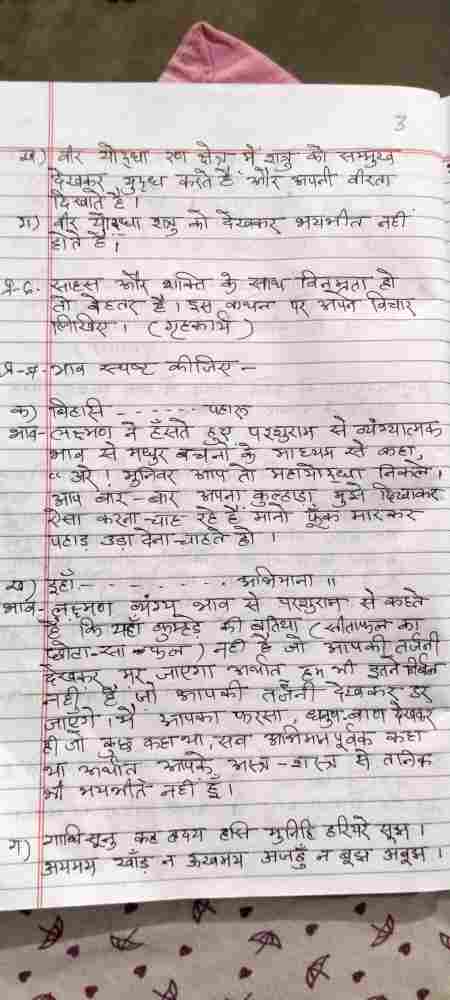 3
ख) वीर योद्धा रण क्षेत्र में शत्रु को सम्मुख
देखकर युद्ध करते हैं और अपनी वीरता
दिखाते हैं।
ग) वीर योद्धा शत्रु को देखकर भयभीत नहीं
होते हैं।
प्र-८. साहस और शक्ति के साथ विनम्रता हो
तो बेहतर है। इस कथन पर अपने विचार
लिखिए। (गृहकार्य)
भाव स्पष्ट कीजिए -
क) बिहसि - - - - - - - पहारू
भाव- लक्ष्मण ने हँसते हुए परशुराम से व्यंग्यात्मक
भाव से मधुर वचनों के माध्यम से कहा,
"अरे! मुनिवर आप तो महायोद्धा निकले।
आप बार-बार अपना कुल्हाडा मुझे दिखाकर
ऐसा करना चाह रहे हैं मानो फूँक मारकर
पहाड़ उड़ा देना चाहते हो।
ख) इहाँ - - - - - - - - अभिमाना॥
भाव- लक्ष्मण व्यंग्य भाव से परशुराम से कहते
हैं कि यहाँ कुम्हड़ की बतिया (सीताफल का
छोटा-सा फल) नहीं है जो आपकी तर्जनी
देखकर मर जाएगा अर्थात् हम भी इतने निर्बल
नहीं हैं जो आपकी तर्जनी देखकर डर
जाएँगे। मैं आपका फरसा, धनुष-बाण देखकर
ही जो कुछ कहा था, सब अभिमानपूर्वक कहा
था अर्थात आपके अस्त्र-शस्त्र से तनिक
भी भयभीत नहीं हूँ।
ग) गाधिसूनु कह हृदय हसि मुनिहि हरियरे सूझ।
अयमय खाँड़ न ऊखमय अजहुँ न बूझ अबूझ।